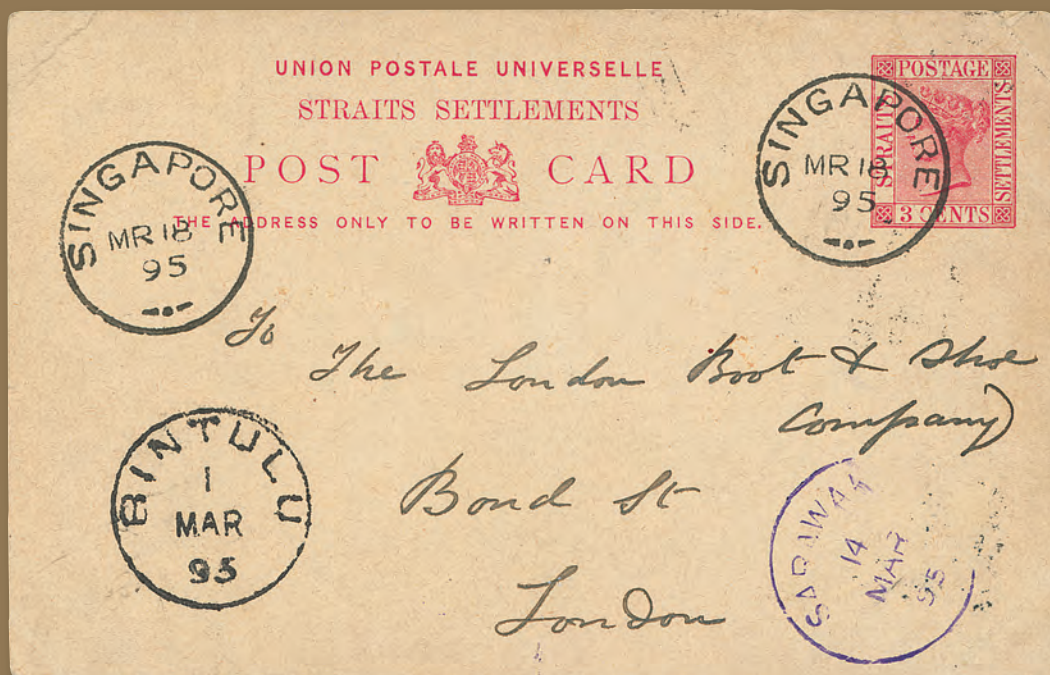 UNION POSTALE UNIVERSELLE
STRAITS SETTLEMENTS
POST CARD
THE ADDRESS ONLY TO BE WRITTEN ON THIS SIDE.
POSTAGE
STRAITS
SETTLEMENTS
3 CENTS
SINGAPORE
MR 18
95
SINGAPORE
MR 18
95
To
The London Boot & Shoe
Company
Bond St
London
BINTULU
1
MAR
95
SARAWAK
14
MAR
95